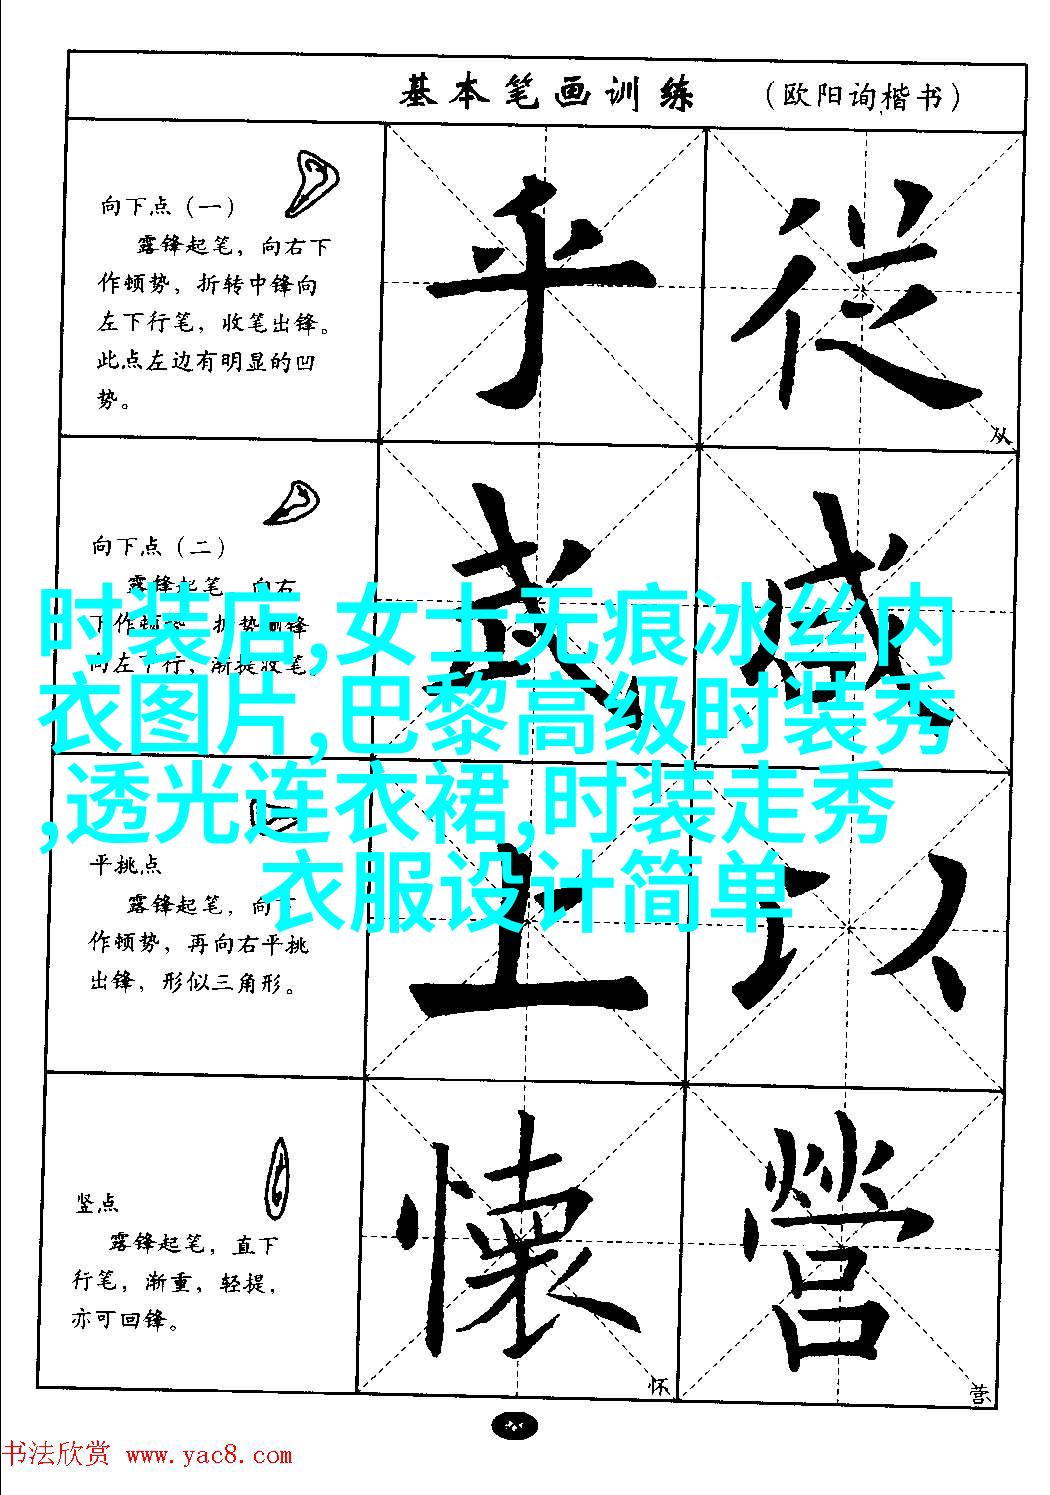 基本笔画训练 （欧阳询楷书）
向下点（一）
露锋起笔，向右下
作顿势，折转中锋向
左下行笔，收笔出锋。
此点左边有明显的凹
势。
乎 從
从
向下点（二）
露锋起笔 向右
下作顿势 折势侧锋
向左下行，渐提收笔
感
时装店,女士无痕冰丝内
衣图片,巴黎高级时装秀
,透光连衣裙,时装走秀
衣服设计简单
平挑点
露锋起笔，向下
作顿势，再向右平挑
出锋，形似三角形。
上 以
竖点
露锋起笔，直下
行笔，渐重，轻提，
亦可回锋。
懷 營
怀 营
书法欣赏 www.yac8.com